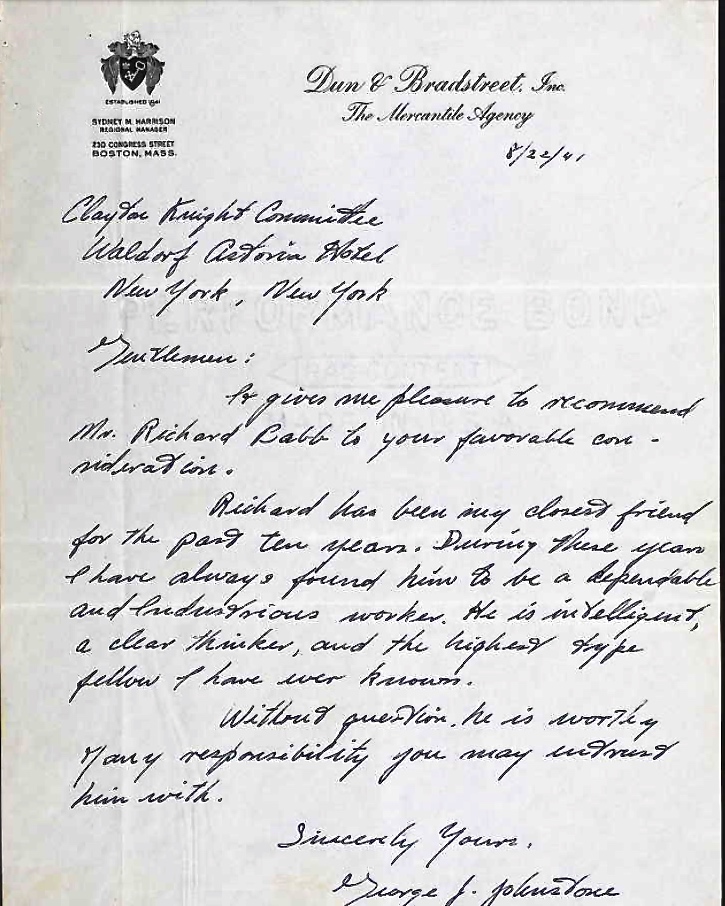 Dun & Bradstreet, Inc.
The Mercantile Agency
ESTABLISHED 1841
SYDNEY M. HARRISON
REGIONAL MANAGER
230 CONGRESS STREET
BOSTON, MASS.
8/22/41
Clayton Knight Committee
Waldorf Astoria Hotel
New York, New York
Gentlemen:
It gives me pleasure to recommend
Mr. Richard Babb to your favorable con-
sideration.
Richard has been my closest friend
for the past ten years. During these years
I have always found him to be a dependable
and Industrious worker. He is intelligent,
a clear thinker, and the highest type
fellow I have ever known.
Without question, he is worthy
of any responsibility you may entrust
him with.
Sincerely Yours,
George J. Johnstone